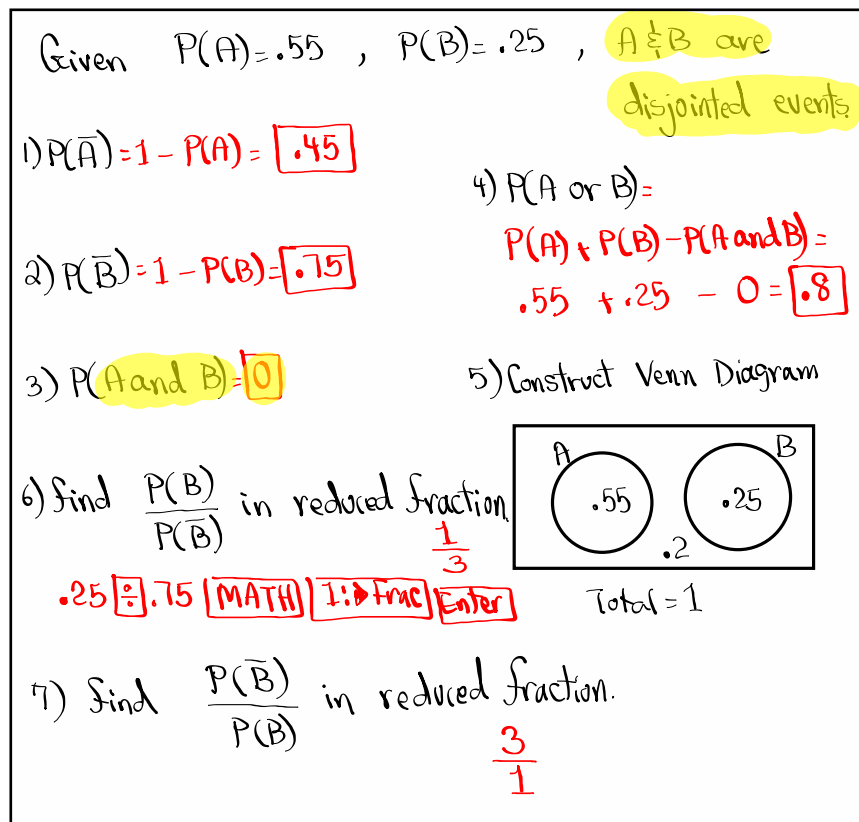 Given P(A)=.55 , P(B)=.25 , A & B are
disjointed events
1) P(A̅)=1-P(A)= .45
2) P(B̅)=1-P(B)= .75
3) P(A and B)= 0
4) P(A or B)=
P(A)+P(B)-P(A and B)=
.55 +.25 - 0 = .8
5) Construct Venn Diagram
A B
.55 .25
.2
Total = 1
6) find P(B)/P(B̅) in reduced fraction.
1/3
.25 ÷ .75 MATH 1:▶Frac Enter
7) find P(B̅)/P(B) in reduced fraction.
3/1